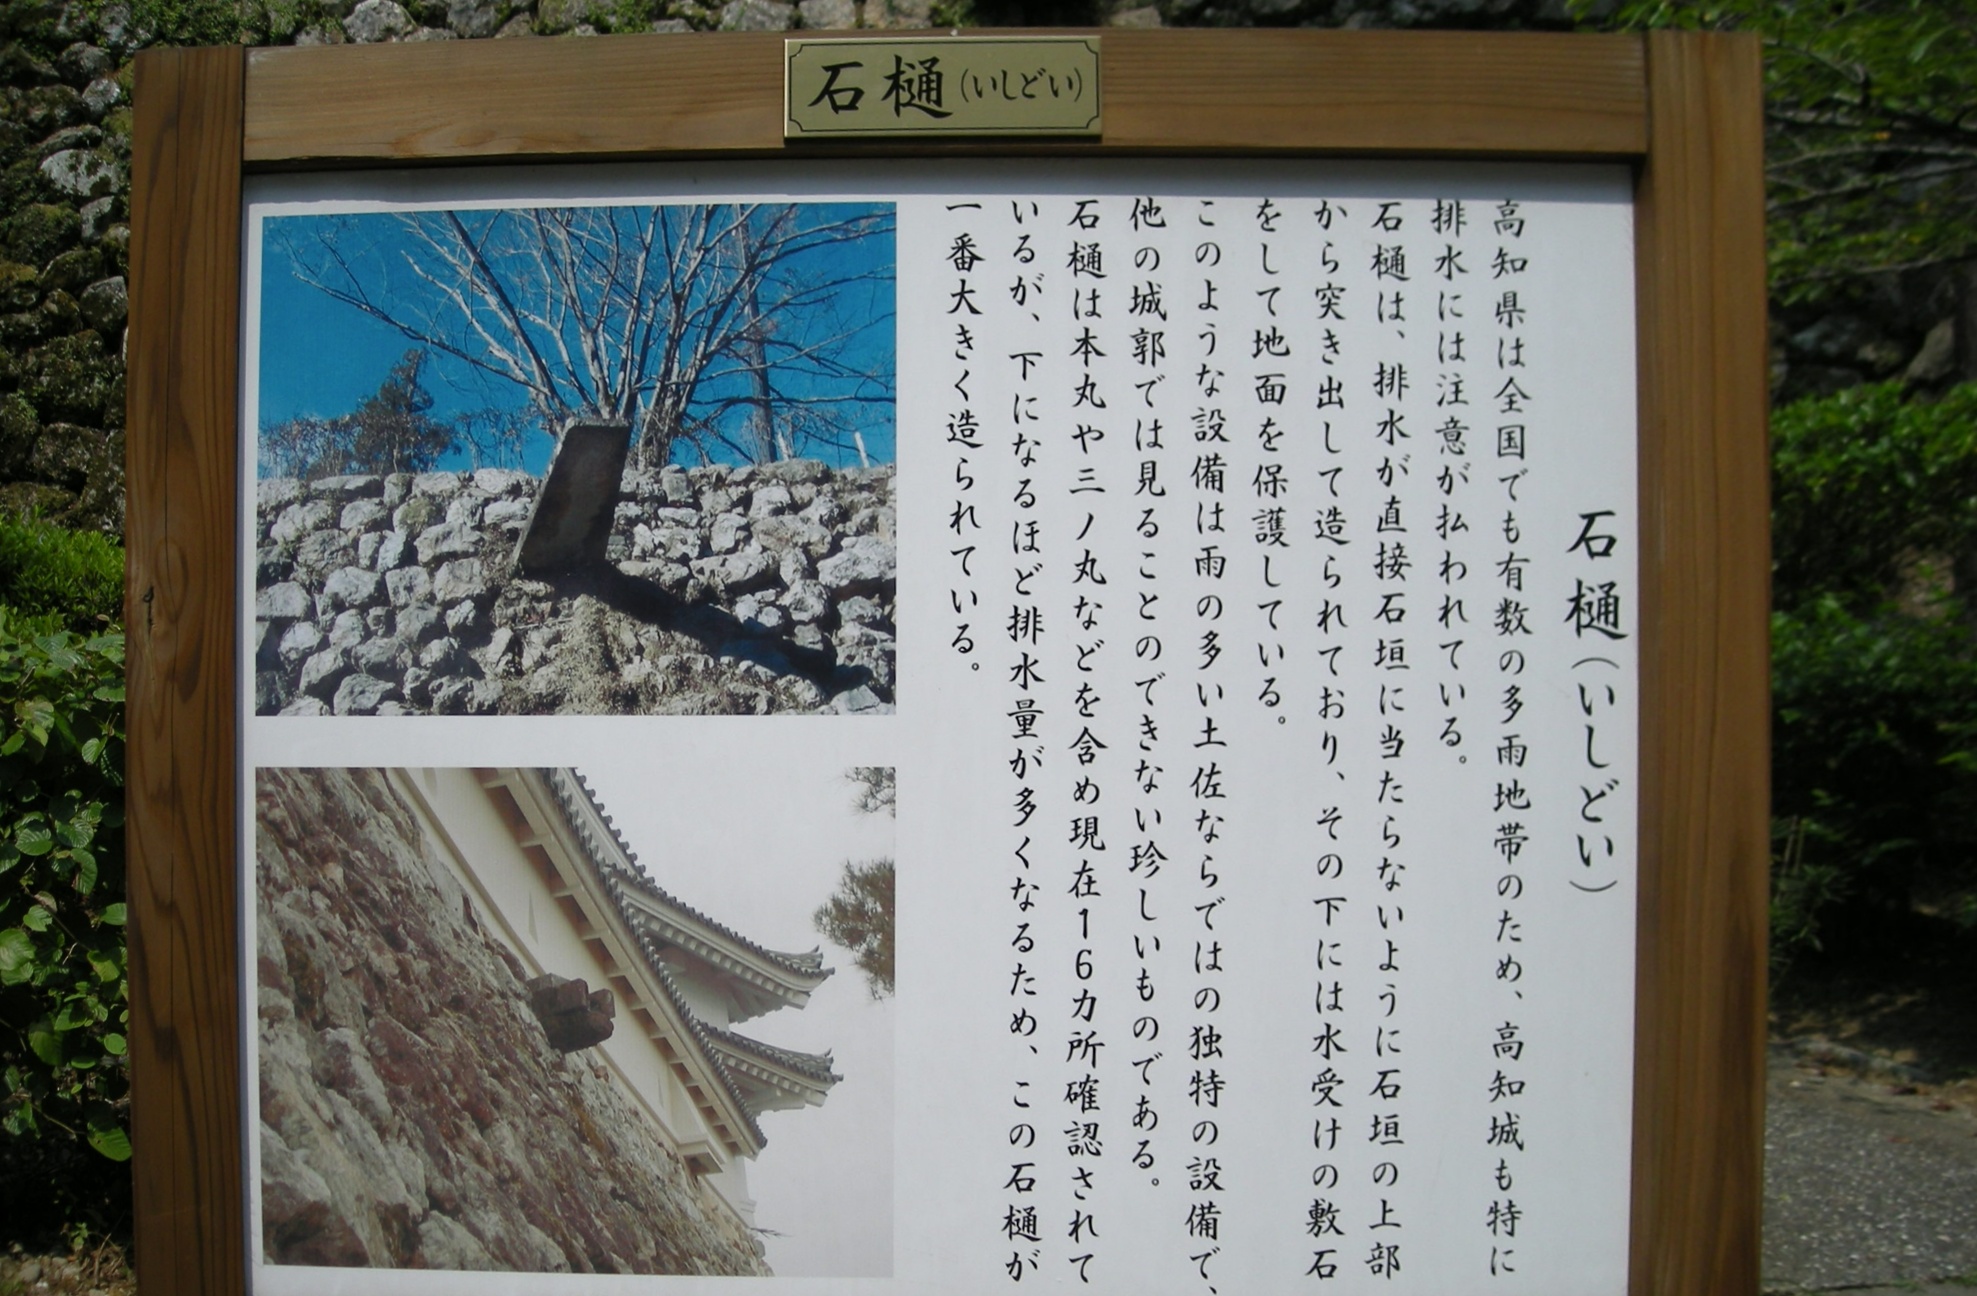 石樋(いしどい)
石樋(いしどい)
高知県は全国でも有数の多雨地帯のため、高知城も特に
排水には注意が払われている。
石樋は、排水が直接石垣に当たらないように石垣の上部
から突き出して造られており、その下には水受けの敷石
をして地面を保護している。
このような設備は雨の多い土佐ならではの独特の設備で、
他の城郭では見ることのできない珍しいものである。
石樋は本丸や三ノ丸などを含め現在16カ所確認されて
いるが、下になるほど排水量が多くなるため、この石樋が
一番大きく造られている。